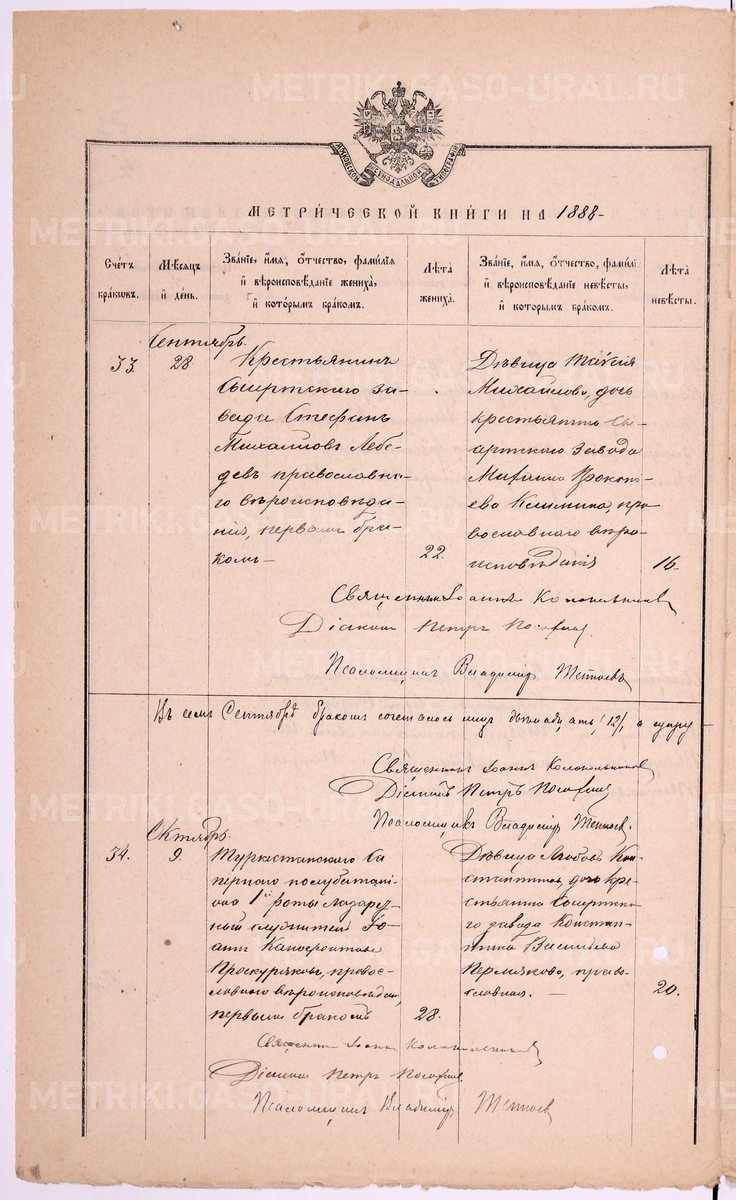 МЕТРИЧЕСКОЙ КНИГИ НА 1888
Счетъ браковъ.
Мѣсяцъ и день.
Званіе, имя, отчество, фамилія и вѣроисповѣданіе жениха, и которымъ бракомъ.
Лѣта жениха.
Званіе, имя, отчество, фамилія и вѣроисповѣданіе невѣсты, и которымъ бракомъ.
Лѣта невѣсты.
Сентябрь.
33.
28.
Крестьянинъ
Сысертскаго за-
вода Стефанъ
Михайловъ Лебе-
девъ православна-
го вѣроисповѣда-
нія, первымъ бра-
комъ
22.
Дѣвица
Михайлова, дочь
крестьянина Сы-
сертскаго завода
Михаила Прокопь-
ева, пра-
вославнаго вѣро-
исповѣданія
16.
Священникъ Іоаннъ Колокольниковъ
Діаконъ Петръ
Псаломщикъ Владиміръ
Въ семъ Сентябрѣ бракомъ сочеталось лицъ двѣнадцать (12), а
Священникъ Іоаннъ Колокольниковъ
Діаконъ Петръ
Псаломщикъ Владиміръ
Октябрь.
34.
9.
Туркестанскаго Са-
пернаго полубаталі-
она 1й роты лазарет-
ный служитель Іо-
аннъ
Проскуряковъ, право-
славнаго вѣроисповѣданія,
первымъ бракомъ
28.
Дѣвица Любовь Кон-
стантинова, дочь кре-
стьянина Сысертска-
го завода Констан-
тина Васильева
Пермякова, право-
славная.
20.
Священникъ Іоаннъ Колокольниковъ
Діаконъ Петръ
Псаломщикъ Владиміръ
METRIKI.GASO-URAL.RU